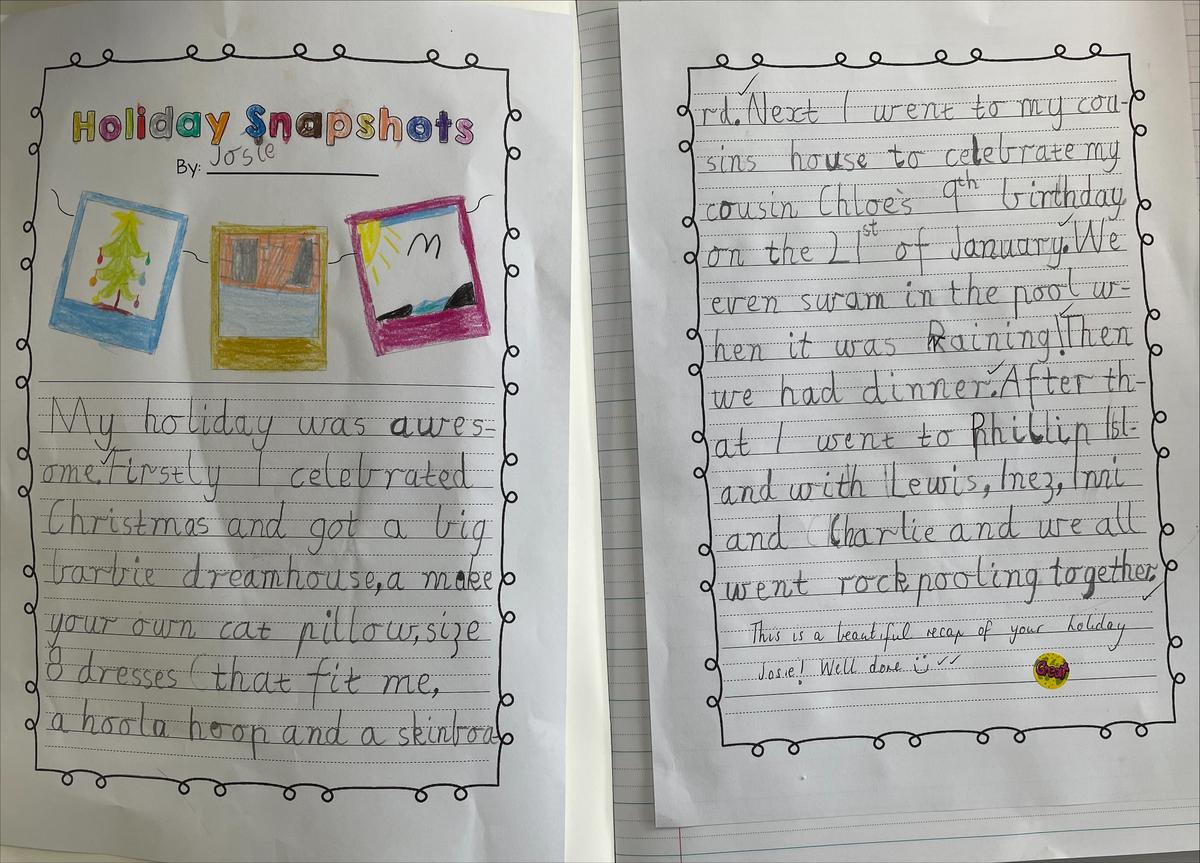 Holiday Snapshots
By: Josie
My holiday was awes-
ome. Firstly I celebrated
Christmas and got a big
barbie dreamhouse, a make
your own cat pillow, size
8 dresses (that fit me,
a hoola hoop and a skinboa
rd. Next I went to my cou-
sins house to celebrate my
cousin Chloe's 9th birthday
on the 21st of January. We
even swam in the pool w-
hen it was Raining! Then
we had dinner. After th-
at I went to Phillip Isl-
and with Lewis, Inez, Inni
and Charlie and we all
went rockpooling together.
This is a beautiful recap of your holiday
Josie! Well done
Great